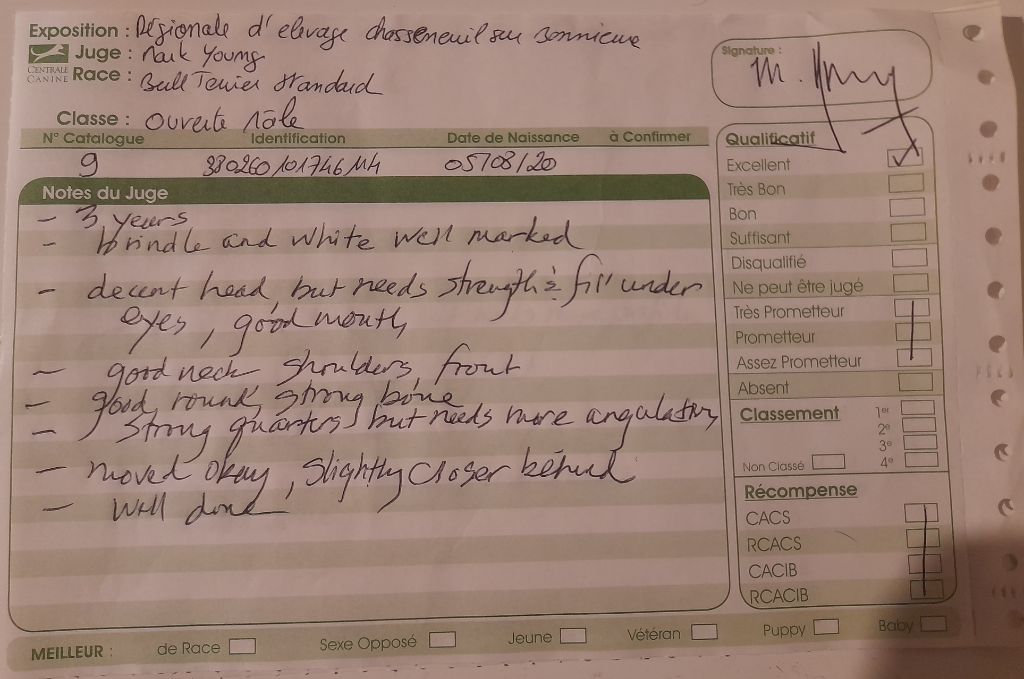 Exposition : Régionale d'elevage chasseneuil sur Bonnieure
CENTRALE CANINE
Juge : Mark Young
Race : Bull Terrier Standard
Signature : M. Young
Classe : Ouverte Mâle
N° Catalogue Identification Date de Naissance à Confirmer
9 380260101746114 05/08/20
Notes du Juge
- 3 years
- brindle and white well marked
- decent head, but needs strength & fill under
eyes, good mouth
- good neck shoulders, front
- good, round, strong bone
- strong quarters, but needs more angulation
- moved okay, slightly closer behind
- Well done
Qualificatif
Excellent
Très Bon
Bon
Suffisant
Disqualifié
Ne peut être jugé
Très Prometteur
Prometteur
Assez Prometteur
Absent
Classement 1er
2e
3e
Non Classé 4e
Récompense
CACS
RCACS
CACIB
RCACIB
MEILLEUR : de Race Sexe Opposé Jeune Vétéran Puppy Baby